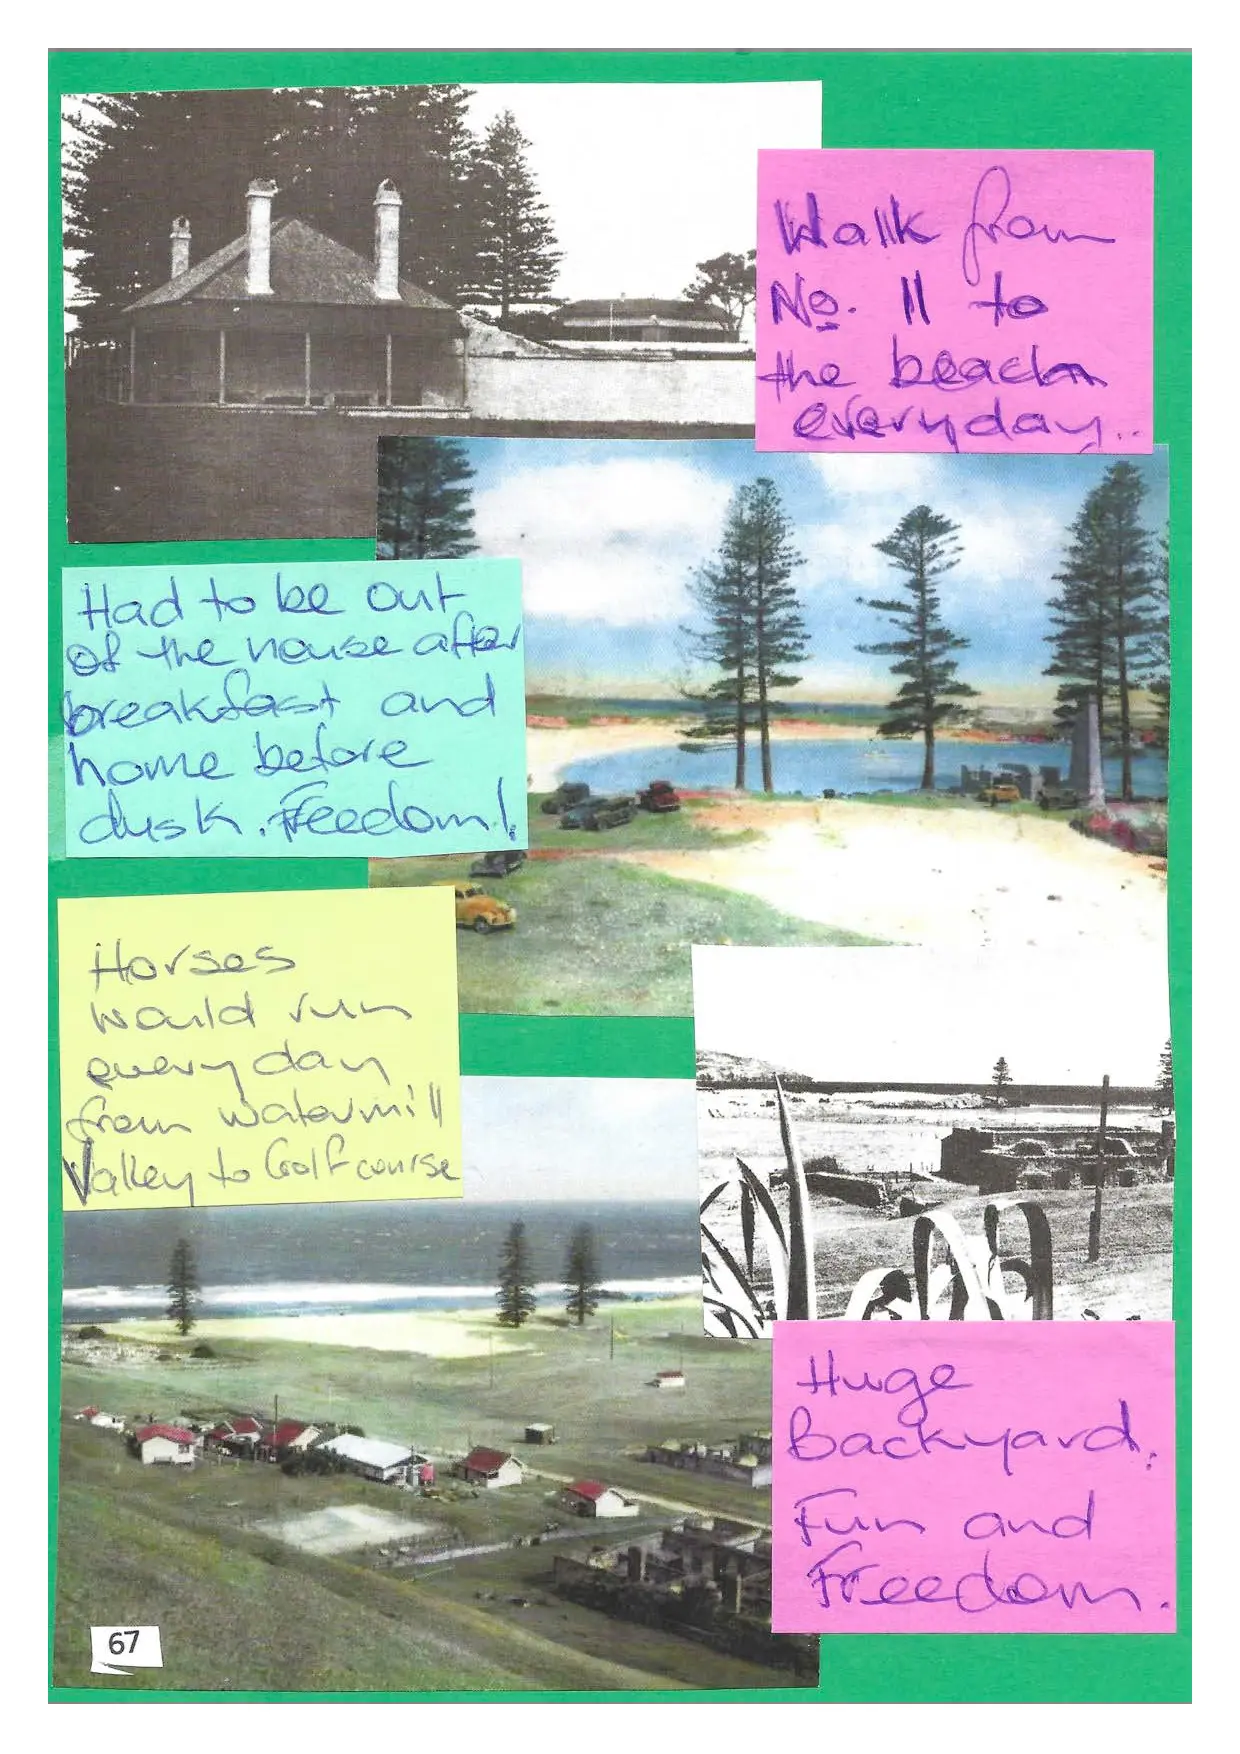 Walk from
No. 11 to
the beach
everyday..
Had to be out
of the house after
breakfast and
home before
dusk. Freedom!
Horses
would run
everyday
from watermill
Valley to Golf course
Huge
Backyard.
Fun and
Freedom.
67